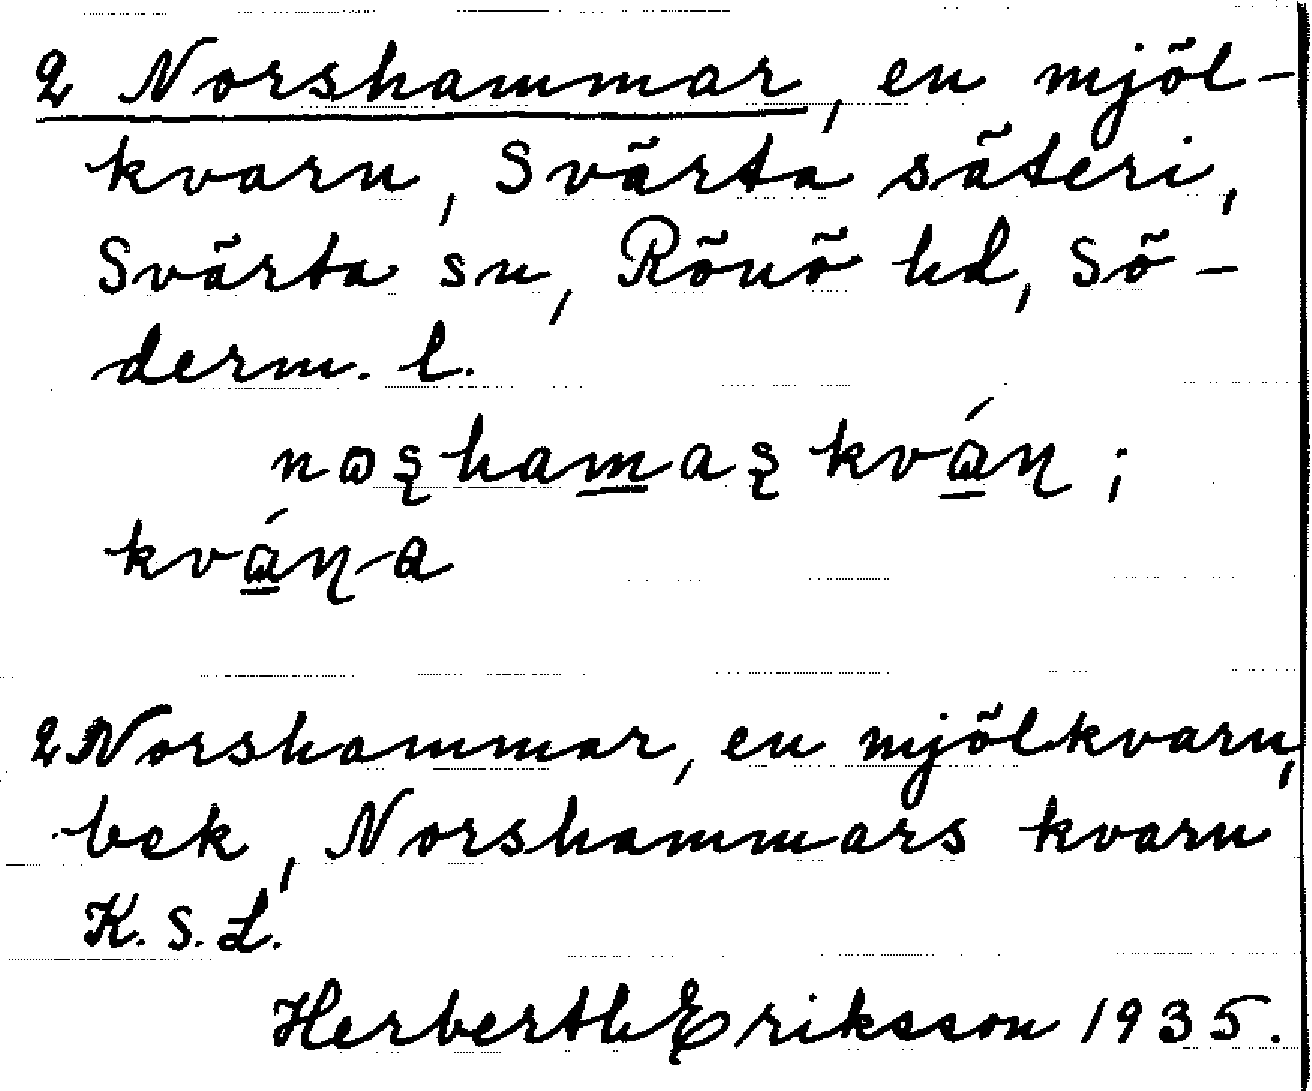 2 Norshammar, en mjöl-
kvarn, Svärta säteri,
Svärta sn, Rönö hd, Sö-
derm. l.
2 Norshammar, en mjölkvarn,
bek, Norshammars kvarn
K.S.L.
Herberth Eriksson 1935.